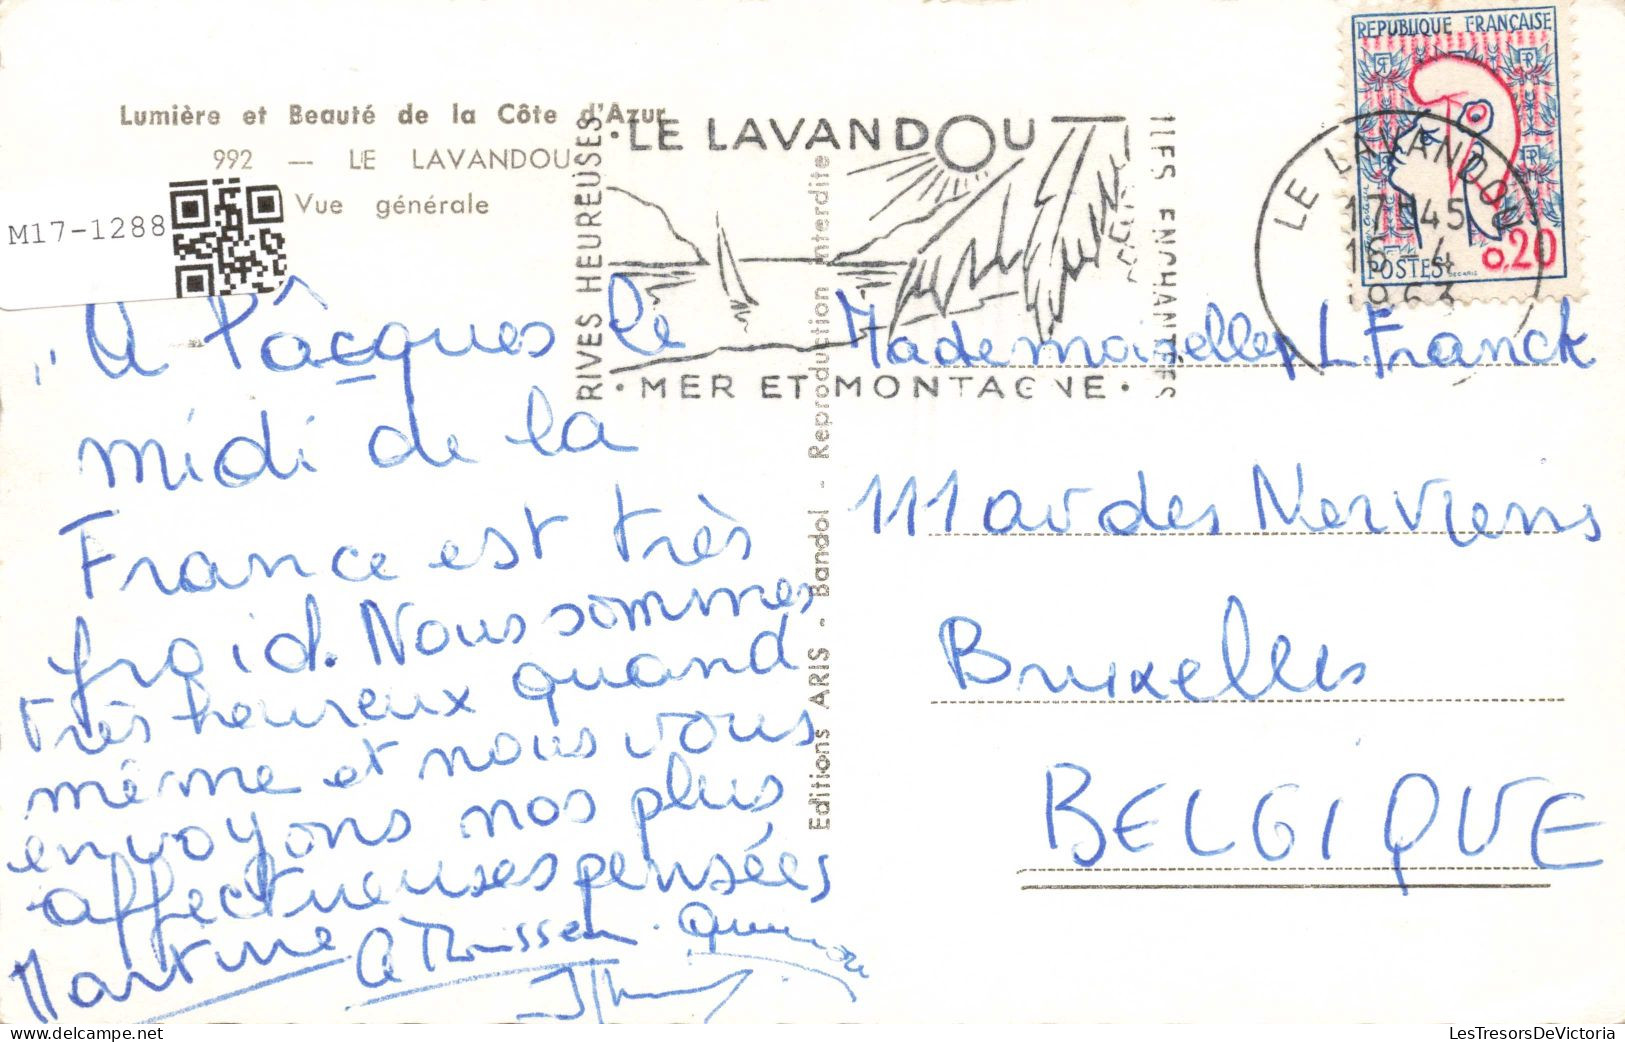 Lumière et Beauté de la Côte d'Azur
992 — LE LAVANDOU
Vue générale
M17-1288
A Pâcques le
midi de la
France est très
froid. Nous sommes
très heureux quand
même et nous vous
envoyons nos plus
affectueuses pensées
Martine
Editions ARIS - Bandol - Reproduction interdite
RIVES HEUREUSES
·LE LAVANDOU
ILES ENCHANTÉES
·MER ET MONTAGNE·
REPUBLIQUE FRANÇAISE
0,20
POSTES
LE LAVANDOU
17H45
16-4
1963
Mademoiselle L. Franck
111 av des Nerviens
Bruxelles
BELGIQUE
LesTresorsDeVictoria.com